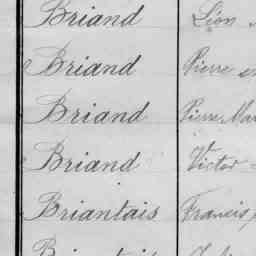 Briand Léon
Briand Pierre
Briand Pierre Mar
Briand Victor
Briantais Francis